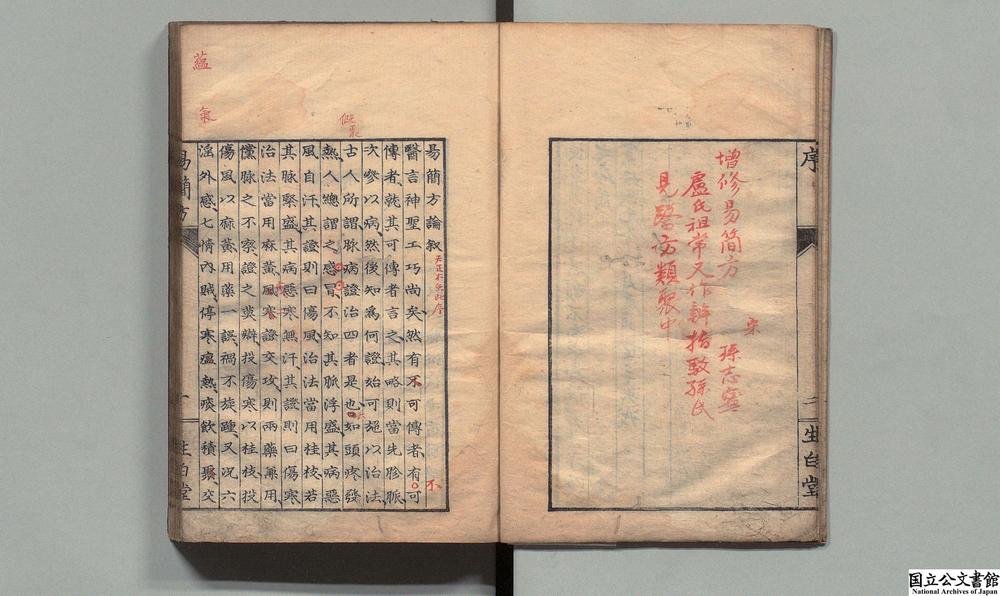 序 二 生白堂
增修易簡方 宋 孫志寧
盧氏祖常又作辨指駁孫氏
見醫方類聚中
易簡方論叙
天正本無此序
醫言神聖工巧尚矣然有不可傳者有可
不
傳者就其可傳者言之其略則當先胗脈
次參以病然後知爲何證始可施以治法
古人所謂脈病證治四者是也如頭疼發
熱人總謂之感冒不知其脈浮盛其病惡
風自汗其證則曰傷風治法當用桂枝若
其脈緊盛其病惡寒無汗其證則曰傷寒
治法當用麻黃風寒證交攻則兩藥兼用
儻脈之不察證之莫辨投傷寒以桂枝投
傷風以麻黃用藥一誤禍不旋踵又况六
淫外感七情内賊停寒瘟熱痰飲積聚交
蘊
氣
易簡方 一 生白堂
国立公文書館
National Archives of Japan